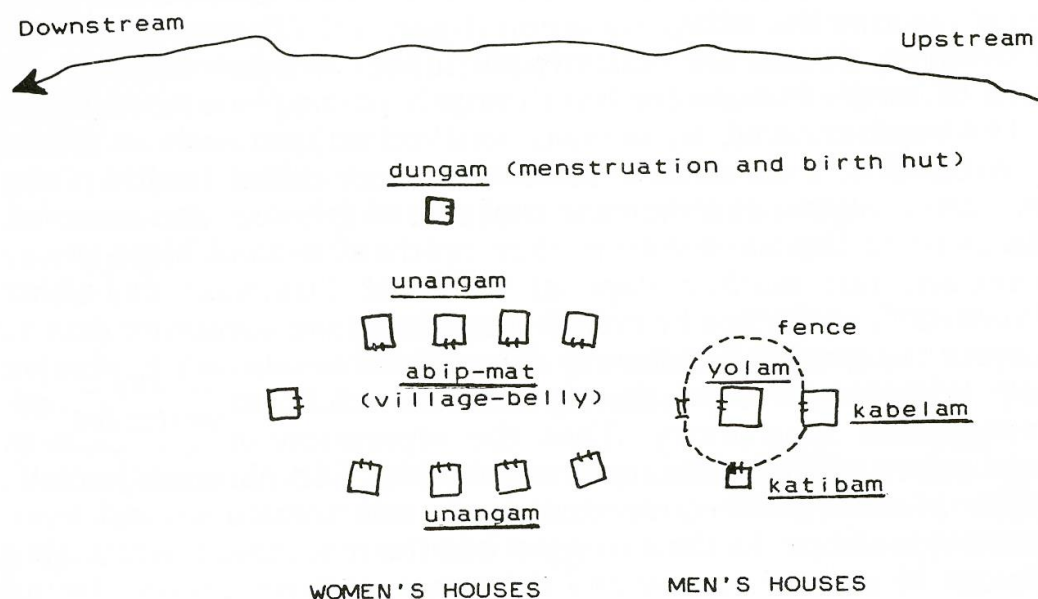 Downstream
Upstream
dungam (menstruation and birth hut)
unangam
fence
abip-mat
yolam
(village-belly)
kabelam
katibam
unangam
WOMEN'S HOUSES
MEN'S HOUSES